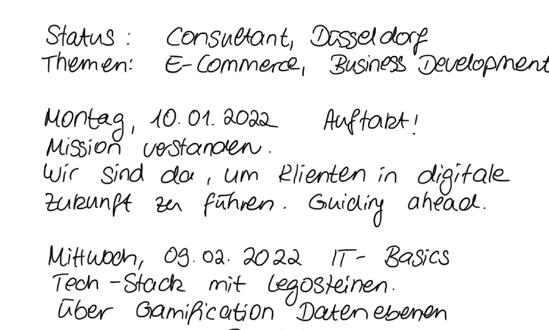 Status: Consultant, Düsseldorf
Themen: E-Commerce, Business Development
Montag, 10.01.2022 Auftakt!
Mission verstanden.
Wir sind da, um Klienten in digitale
Zukunft zu führen. Guiding ahead.
Mittwoch, 09.02.2022 IT-Basics
Tech-Stack mit Legosteinen.
Über Gamification Datenebenen